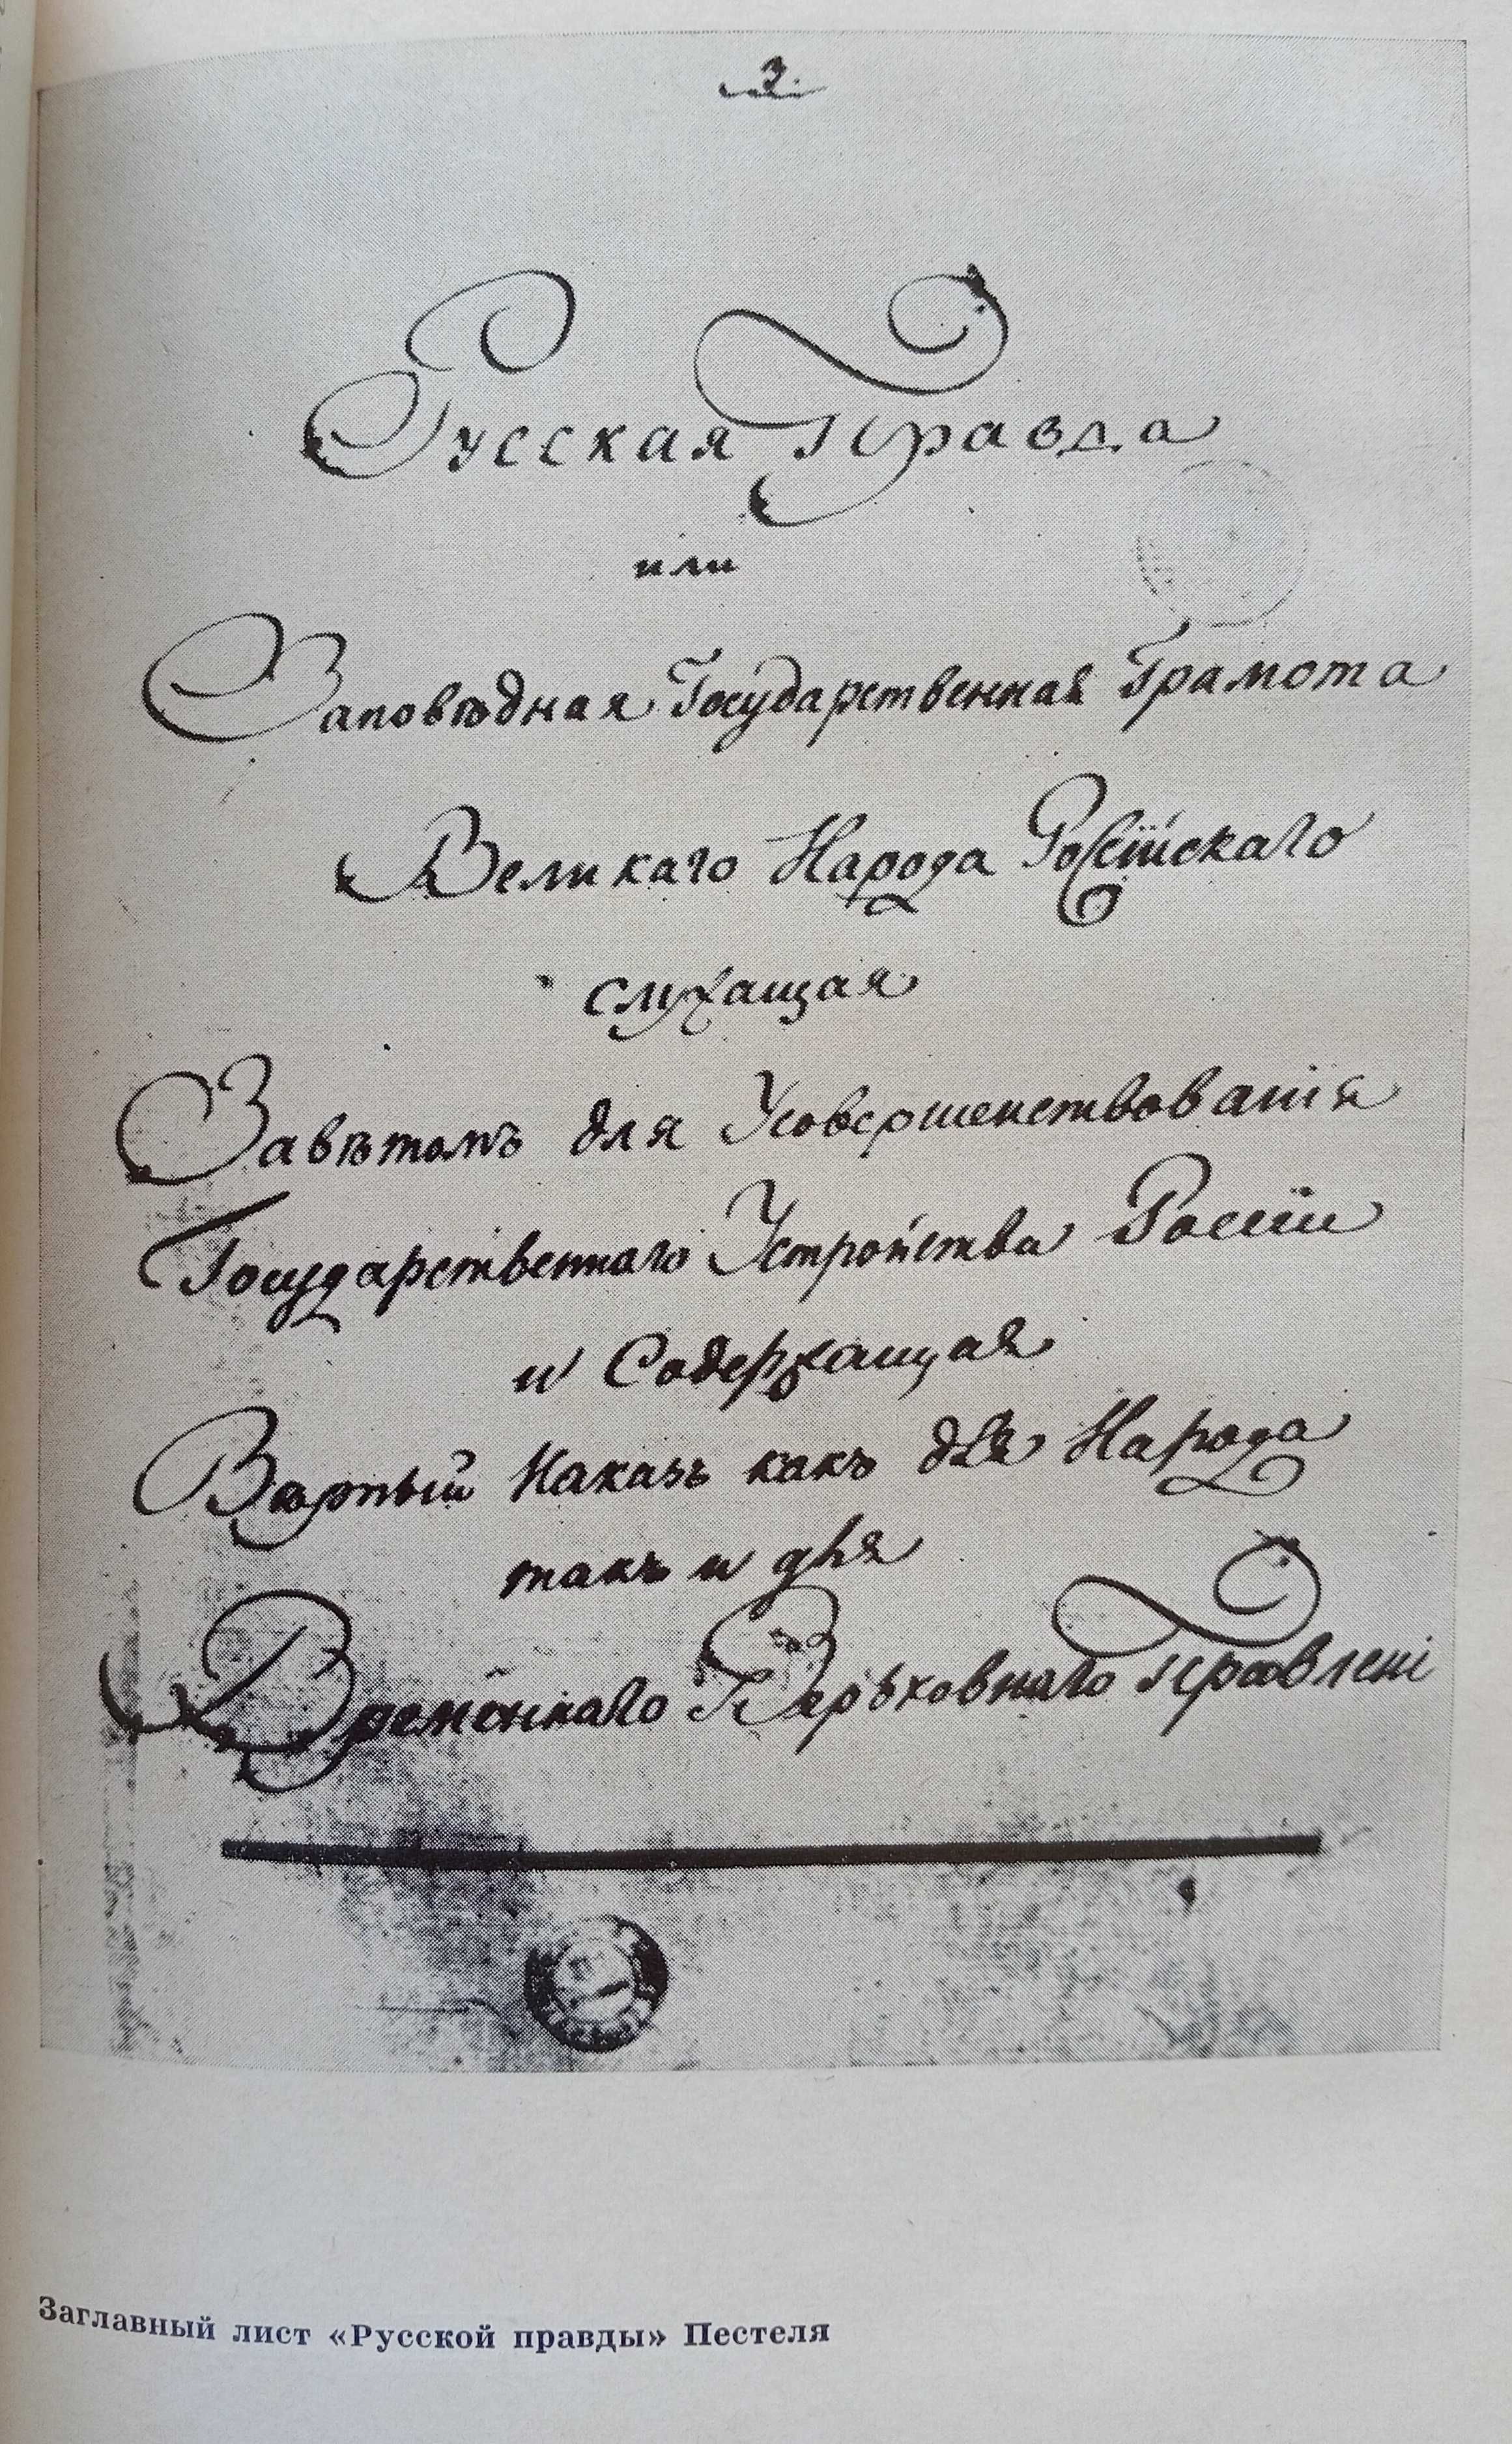 3.
Русская Правда
или
Заповѣдная Государственная Грамота
Великаго Народа Россійскаго
служащая
Завѣтомъ для Усовершенствованія
Государственнаго Устройства Россіи
и Содержащая
Вѣрный Наказъ какъ для Народа
такъ и для
Временнаго Верьховнаго Правлені
Заглавный лист «Русской правды» Пестеля